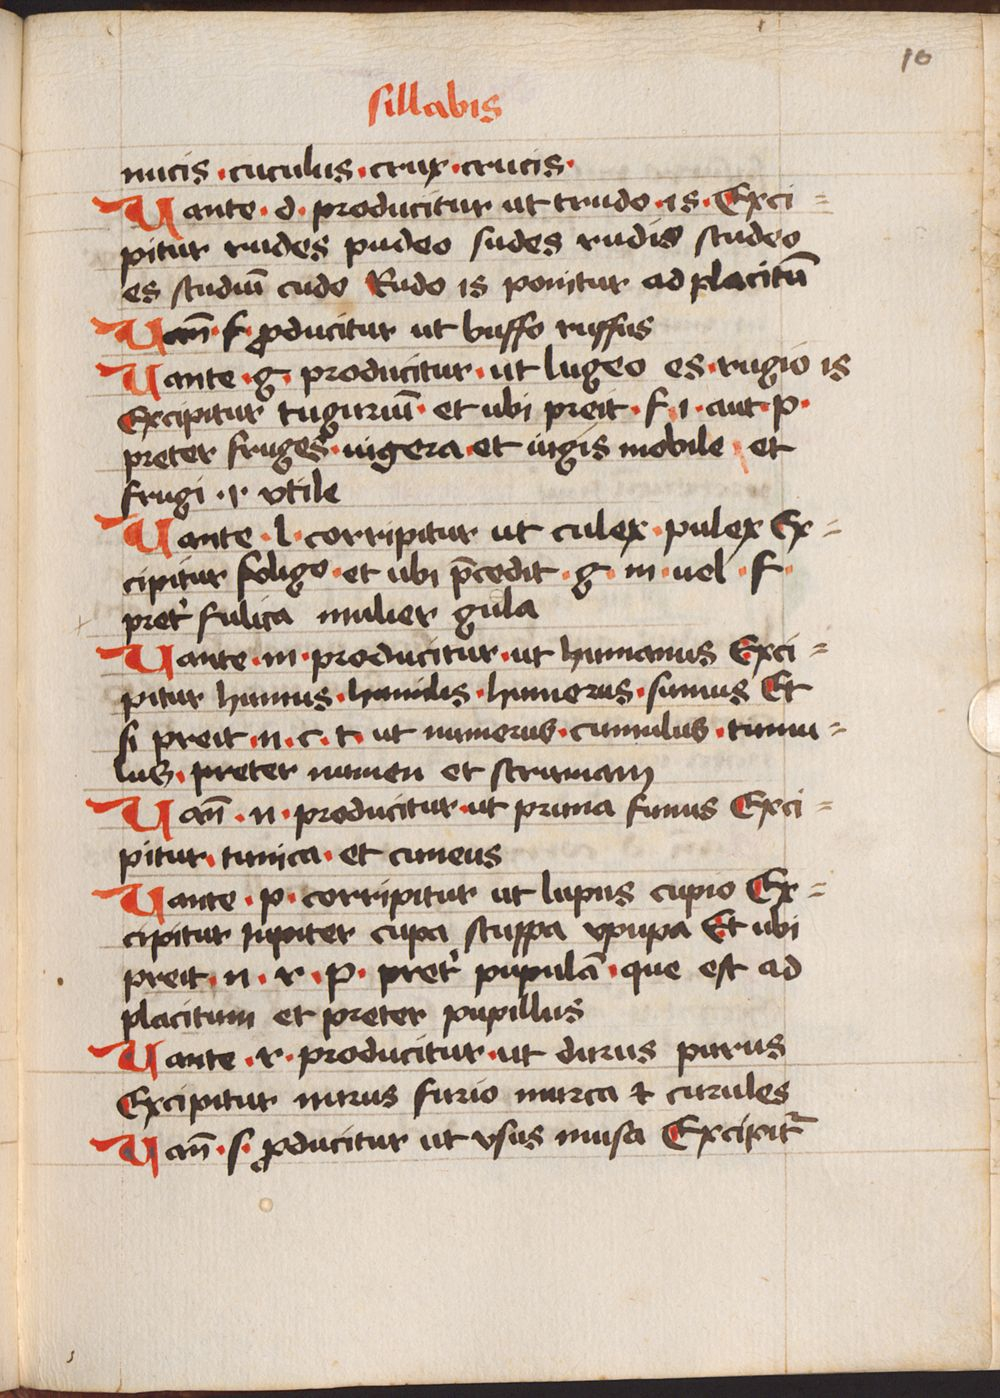 10
sillabis
nucis · cuculus · crux · crucis ·
U ante · d · producitur ut trudo · is · Exci =
pitur rudes pudeo sudes rudis studeo
es studiū cudo Rudo is ponitur ad placitū
U an̄ · f · ꝓducitur ut buffo ruffus
U ante · g · producitur · ut lugeo es · rugio is
Excipitur tuguriū · et ubi preit · f · i · aut · p ·
preter fruges · iugera · et iugis mobile · et
frugi · i · vtile
U ante · l · corripitur ut culex · pulex Ex =
cipitur fuligo · et ubi p̄cedit · g · m · uel · f ·
pret̉ fulica mulier gula
U ante · m · producitur · ut humanus Exci =
pitur humus · humidus · humerus · sumus Et
si preit · n · c · t · ut numerus · cumulus · tumu =
lus · preter numen et strumam
U an̄ · n · producitur · ut pruna funus Exci =
pitur · tunica · et cuneus
U ante · p · corripitur ut lupus cupio Ex =
cipitur Iupiter cupa stuppa vpupa Et ubi
preit · n · r · p · pret̉ pupulā · que est ad
placitum et preter pupillus
U ante · r · producitur · ut durus purus
Excipitur nurus furio murca ⁊ curules
U an̄ · s · ꝓducitur ut vsus musa Excipit᷑